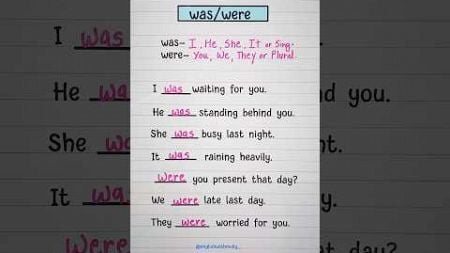 was/were
was- I, He, She, It or Sing.
were- You, We, They or Plural.
I was waiting for you.
He was standing behind you.
She was busy last night.
It was raining heavily.
Were you present that day?
We were late last day.
They were worried for you.